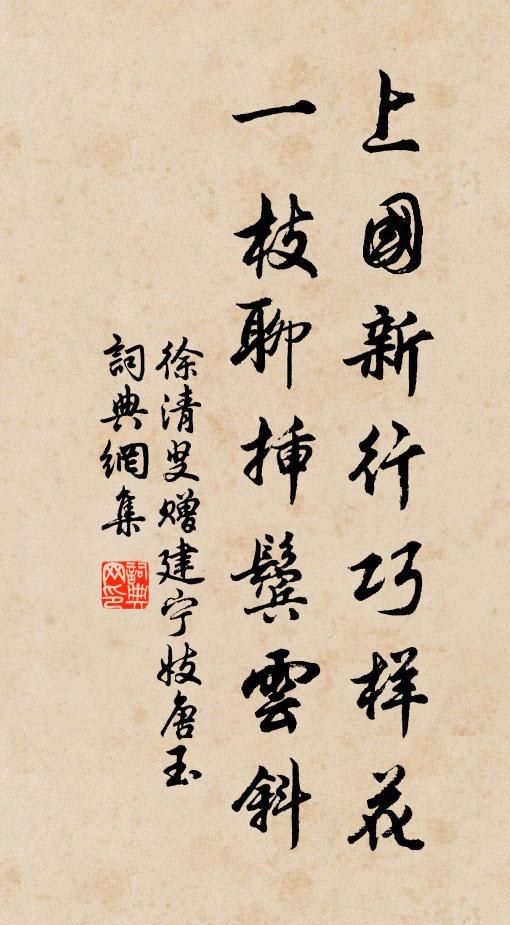 上國新行巧样花
一枝聊揷鬓雲斜
徐清叟赠建宁妓唐玉
詞典網集
詞典
网印